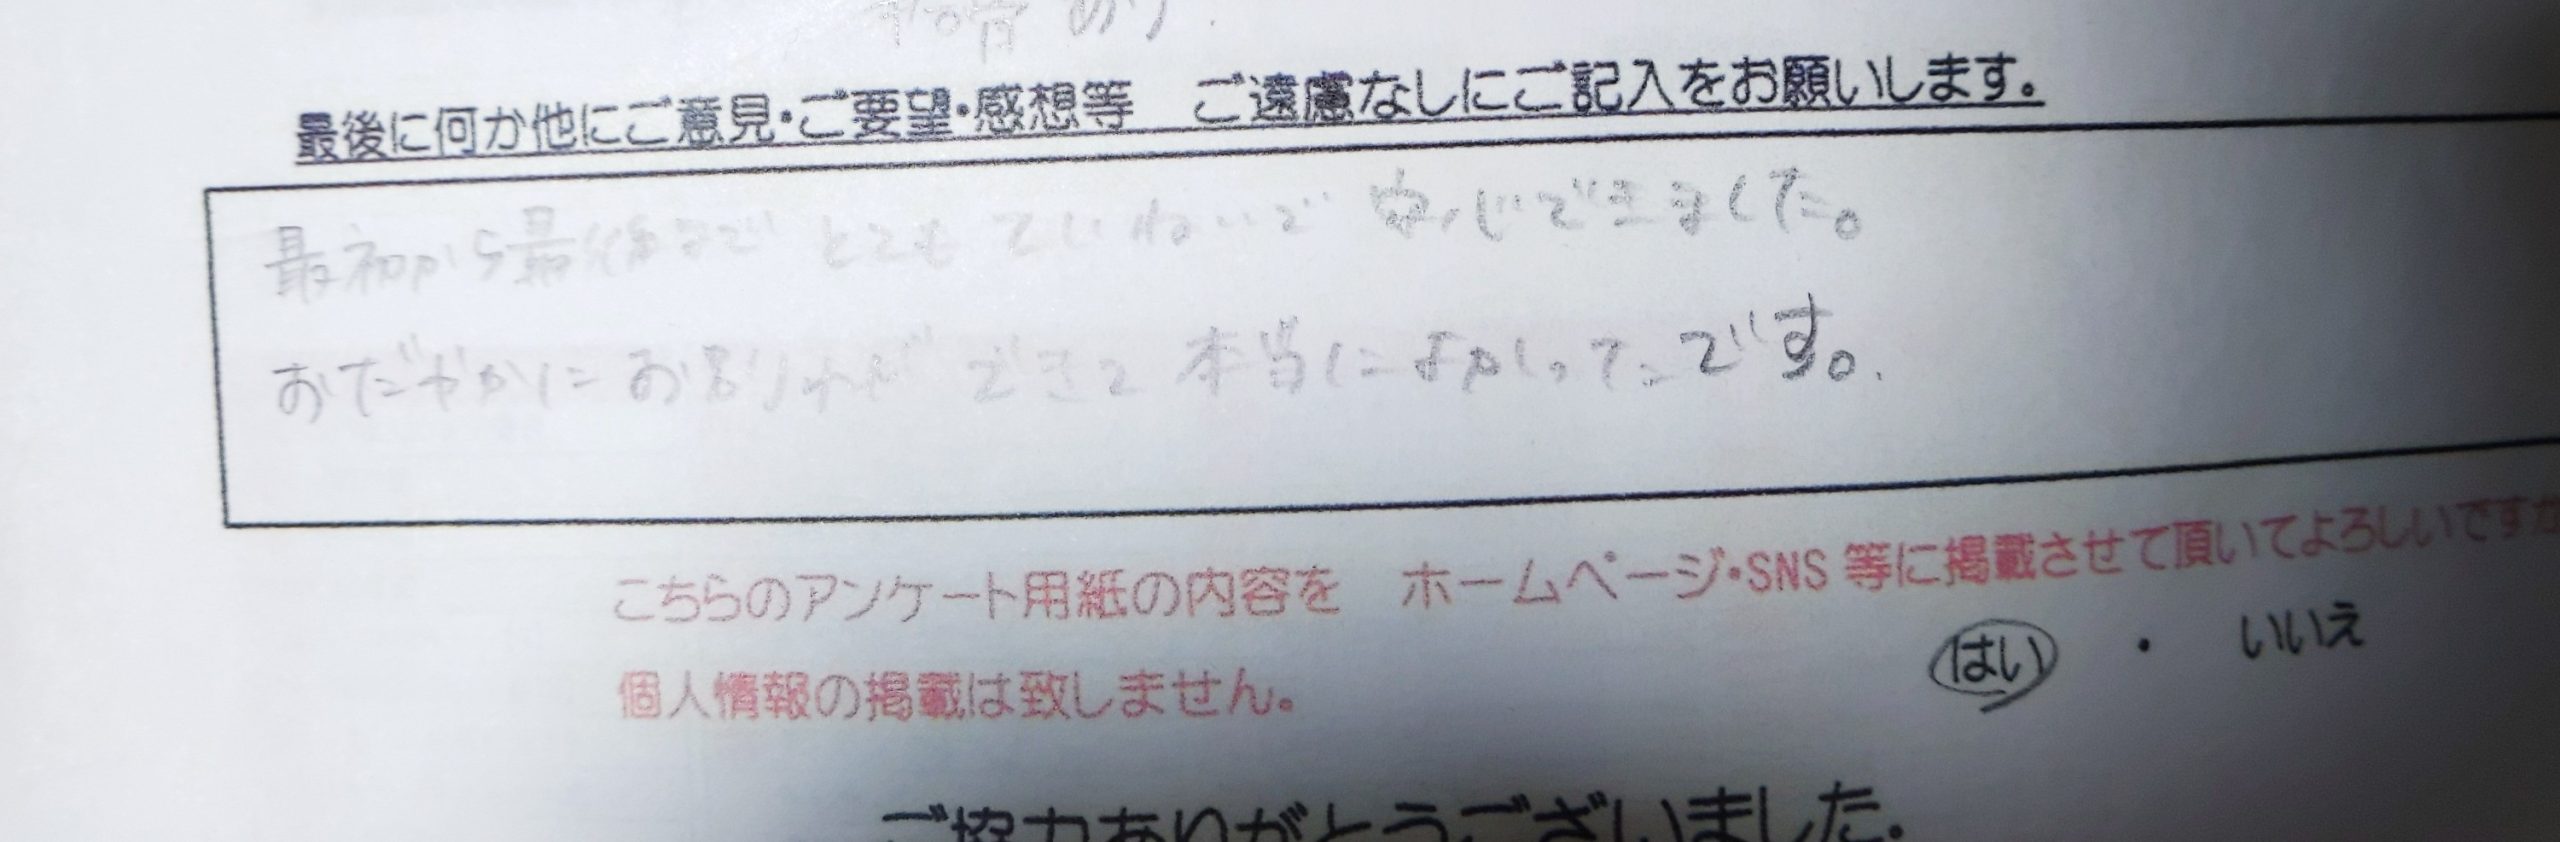 あり.
最後に何か他にご意見・ご要望・感想等　ご遠慮なしにご記入をお願いします。
最初から最後まで とても ていねいで 安心できました。
おだやかに お別れが できて 本当に よかったです。
こちらのアンケート用紙の内容を　ホームページ・SNS 等に掲載させて頂いてよろしいですか
はい ・ いいえ
個人情報の掲載は致しません。
ご協力ありがとうございました.